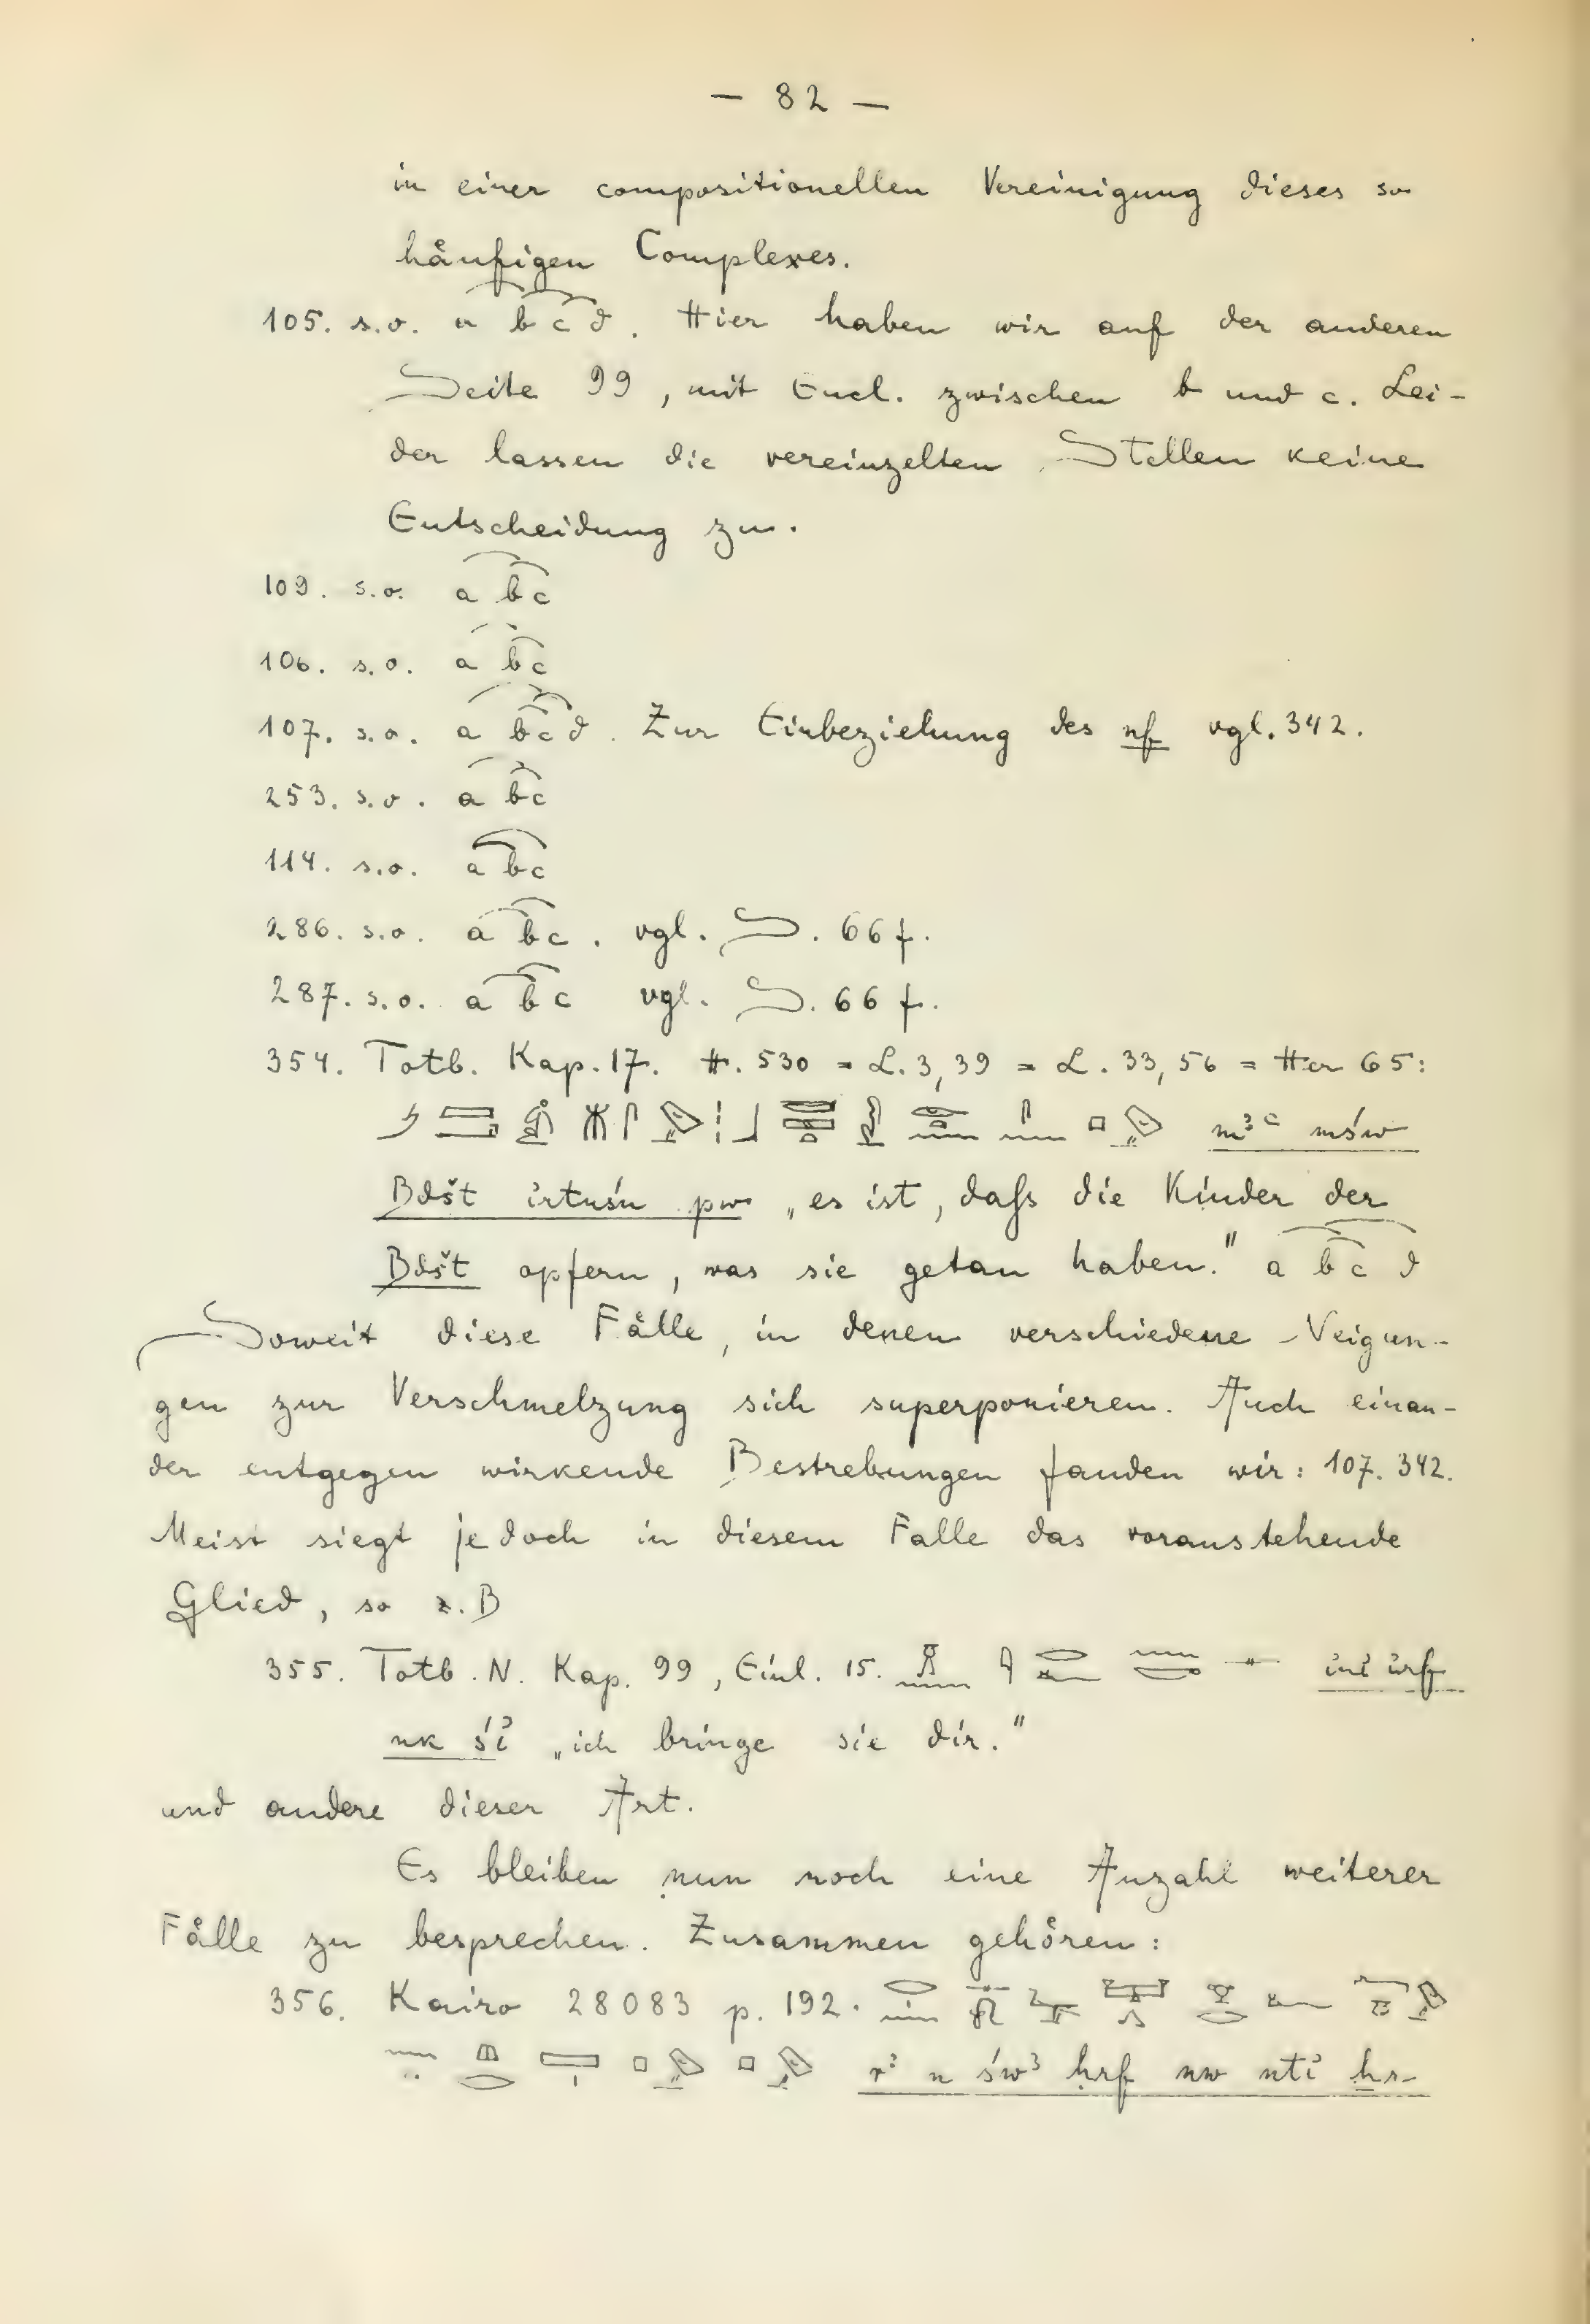 — 82 —
in einer compositionellen Vereinigung dieses so
häufigen Complexes.
105. s.o. a b c d. Hier haben wir auf der anderen
Seite 99, mit Encl. zwischen b und c. Lei-
der lassen die vereinzelten Stellen keine
Entscheidung zu.
109. s.o. a b c
106. s.o. a b c
107. s.o. a b c d. Zur Einbeziehung des nf vgl. 342.
253. s.o. a b c
114. s.o. a b c
286. s.o. a b c. vgl. S. 66 f.
287. s.o. a b c vgl. S. 66 f.
354. Totb. Kap. 17. H. 530 = L. 3,39 = L. 33,56 = Her 65:
mꜣꜥ mśw
Bdšt irtnśn pw „es ist, daß die Kinder der
Bdšt opfern, was sie getan haben." a b c d
Soweit diese Fälle, in denen verschiedene Neigun-
gen zur Verschmelzung sich superponieren. Auch einan-
der entgegen wirkende Bestrebungen fanden wir: 107. 342.
Meist siegt jedoch in diesem Falle das voranstehende
Glied, so z.B
355. Totb. N. Kap. 99, Einl. 15. inỉ irf
nk śỉ „ich bringe sie dir."
und andere dieser Art.
Es bleiben nun noch eine Anzahl weiterer
Fälle zu besprechen. Zusammen gehören:
356. Kairo 28083 p. 192.
n śwꜣ ḥrf nw ntỉ